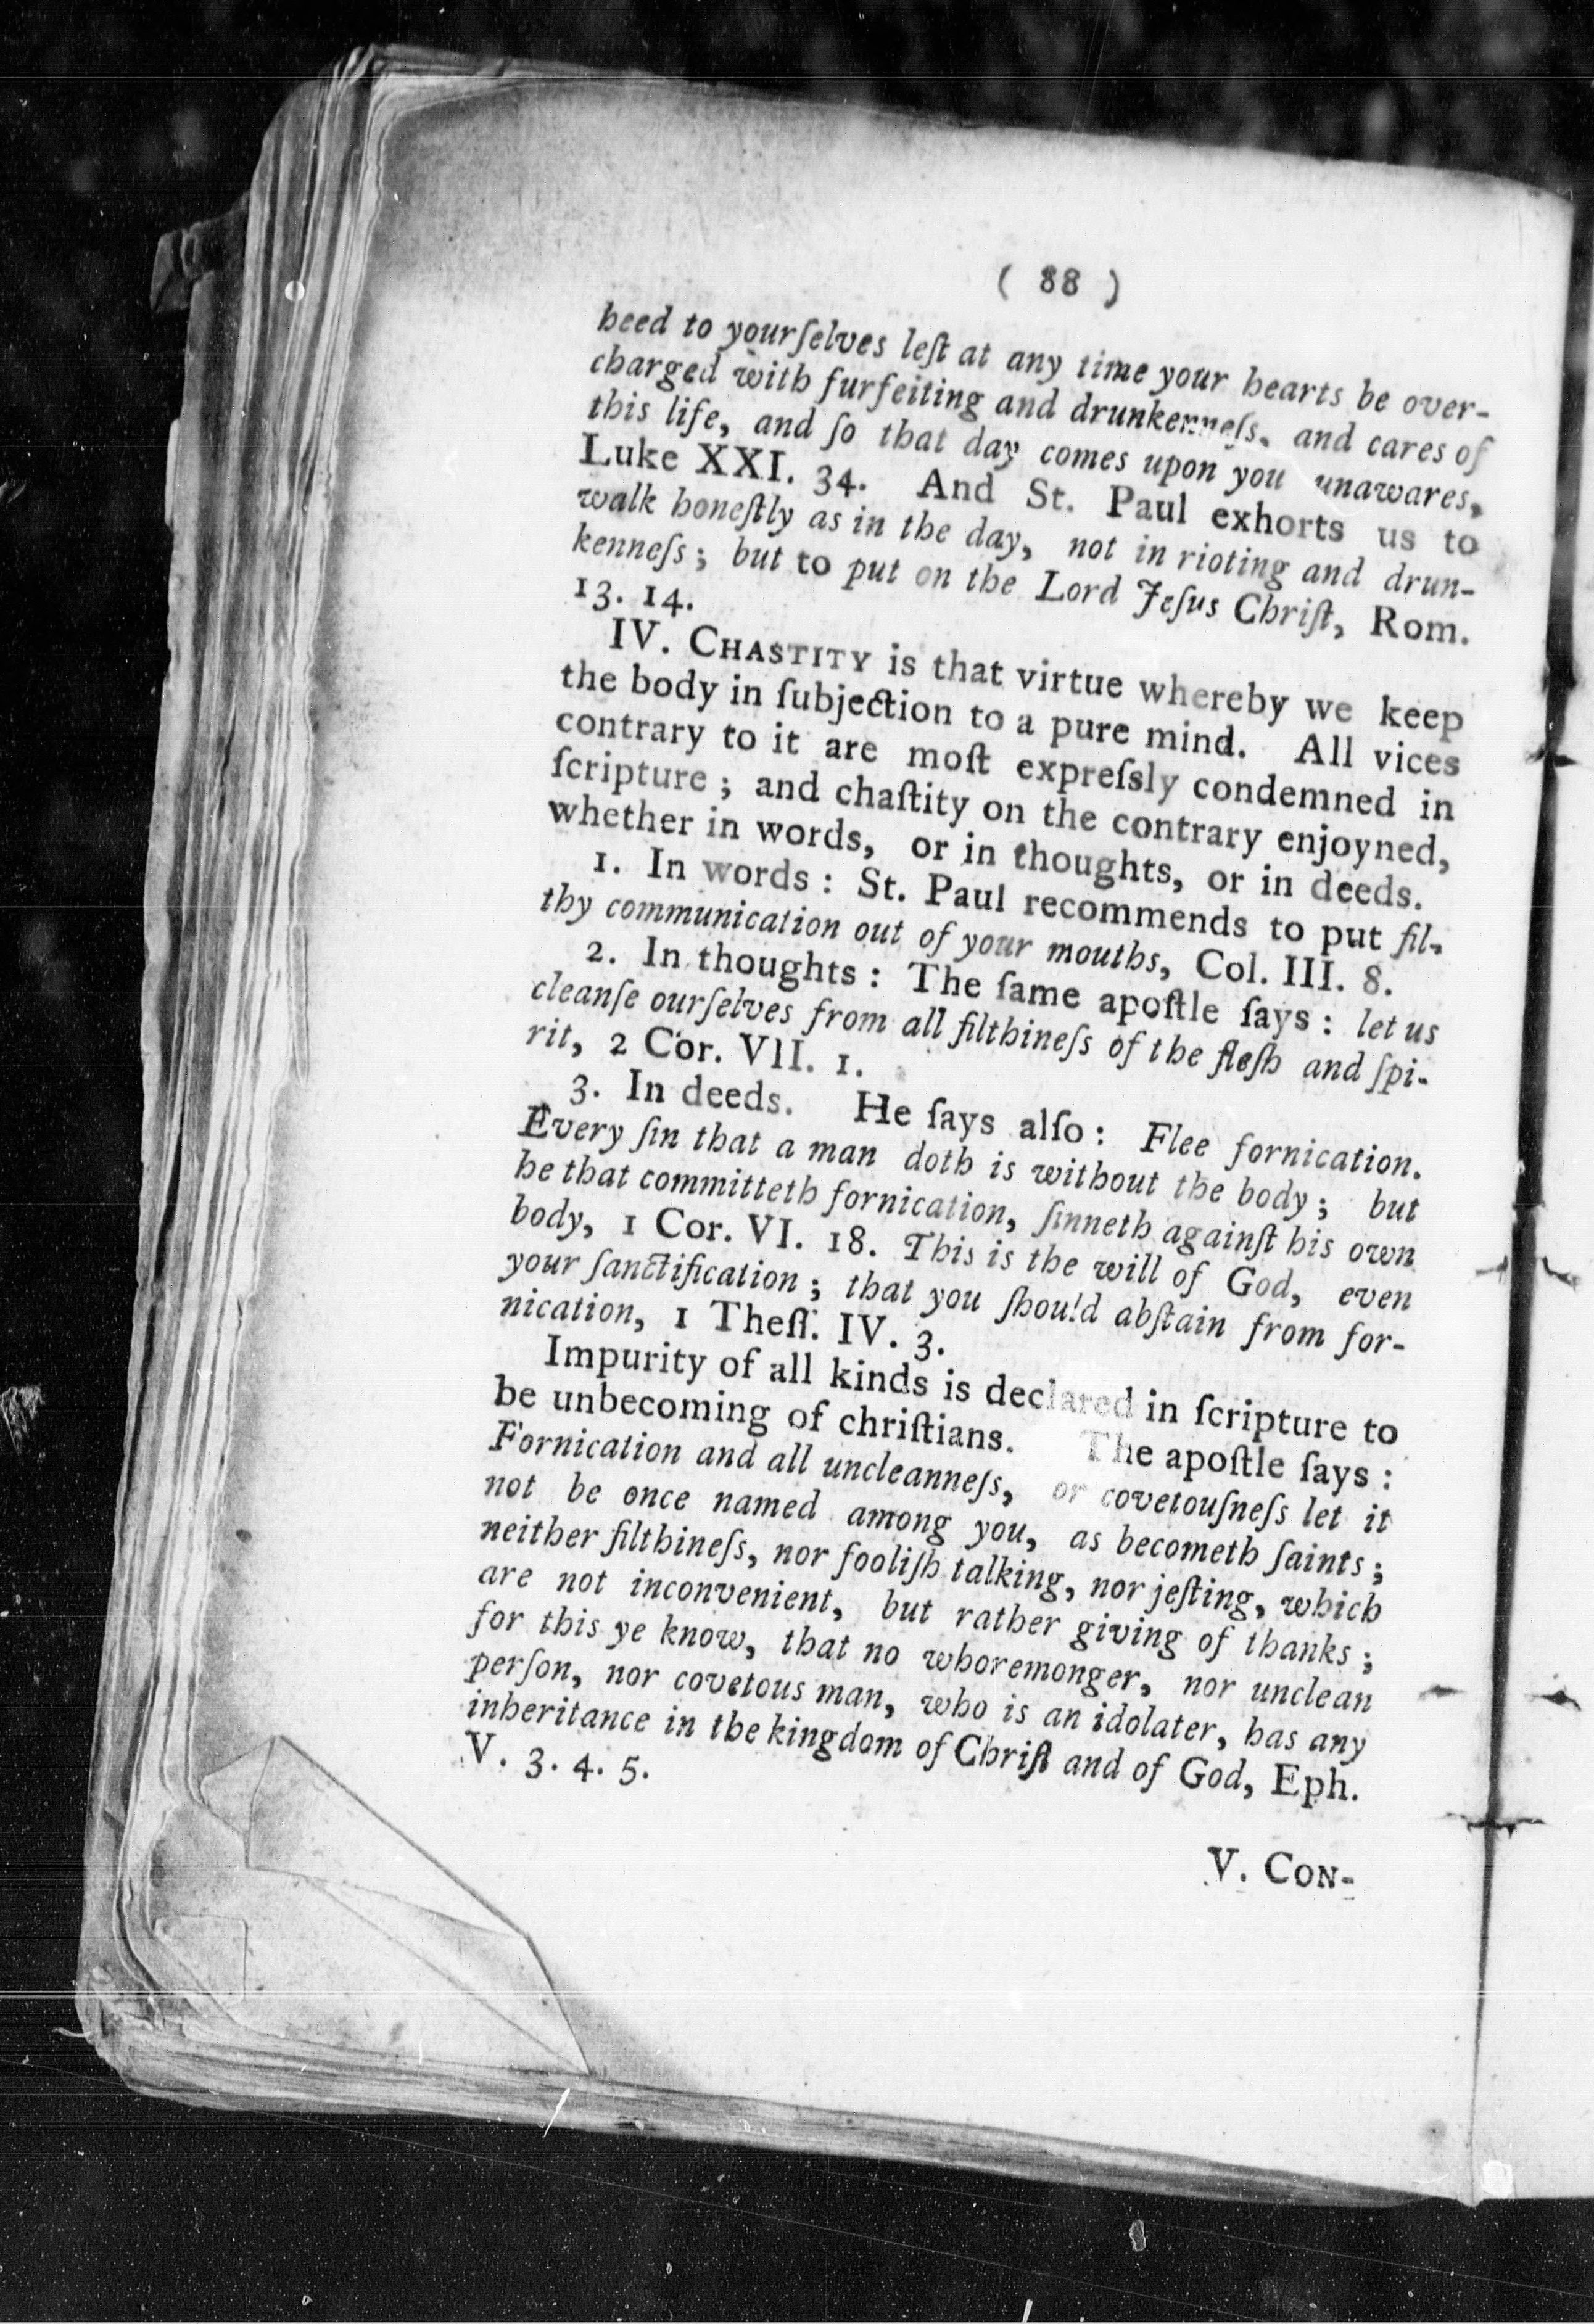 ( 88 )
heed to yourſelves leſt at any time your hearts be over-
charged with furfeiting and drunkenneſs, and cares of
this life, and ſo that day comes upon you unawares,
Luke XXI. 34. And St. Paul exhorts us to
walk honeſtly as in the day, not in rioting and drun-
kenneſs; but to put on the Lord Jeſus Chriſt, Rom.
13. 14.
IV. CHASTITY is that virtue whereby we keep
the body in ſubjection to a pure mind. All vices
contrary to it are moſt expreſsly condemned in
ſcripture; and chaſtity on the contrary enjoyned,
whether in words, or in thoughts, or in deeds.
1. In words: St. Paul recommends to put fil-
thy communication out of your mouths, Col. III. 8.
2. In thoughts: The ſame apoſtle ſays: let us
cleanſe ourſelves from all filthineſs of the fleſh and ſpi-
rit, 2 Cor. VII. 1.
3. In deeds. He ſays alſo: Flee fornication.
Every ſin that a man doth is without the body; but
he that committeth fornication, ſinneth againſt his own
body, 1 Cor. VI. 18. This is the will of God, even
your ſanctification; that you ſhould abſtain from for-
nication, 1 Theſſ. IV. 3.
Impurity of all kinds is declared in ſcripture to
be unbecoming of chriſtians. The apoſtle ſays:
Fornication and all uncleanneſs, or covetouſneſs let it
not be once named among you, as becometh ſaints;
neither filthineſs, nor fooliſh talking, nor jeſting, which
are not inconvenient, but rather giving of thanks;
for this ye know, that no whoremonger, nor unclean
perſon, nor covetous man, who is an idolater, has any
inheritance in the kingdom of Chriſt and of God, Eph.
V. 3. 4. 5.
V. CON-